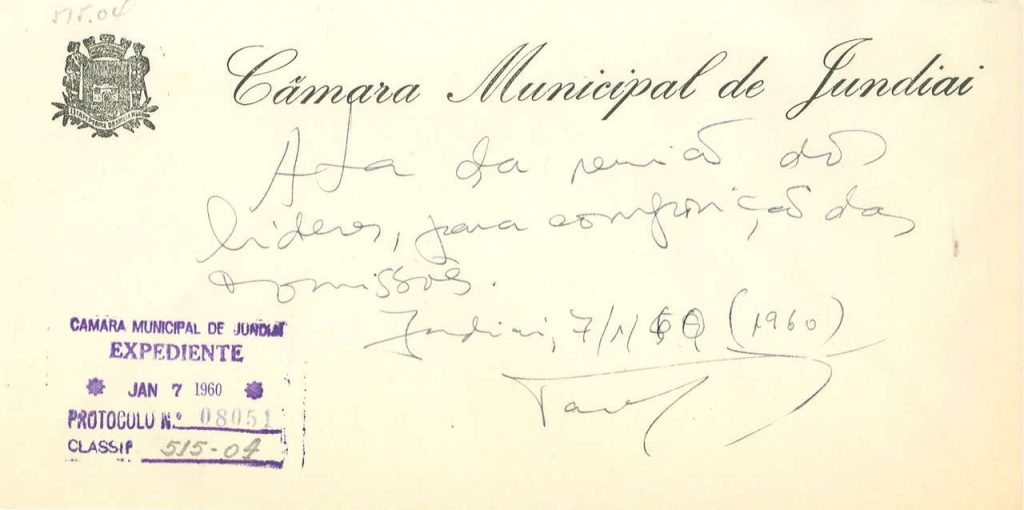 515.04
Câmara Municipal de Jundiai
Ata da reunião dos
lideres, para composição das
comissões.
Jundiai, 7/1/60 (1960)
CAMARA MUNICIPAL DE JUNDIAI
EXPEDIENTE
JAN 7 1960
PROTOCOLO N.º 08051
CLASSIF 515-04